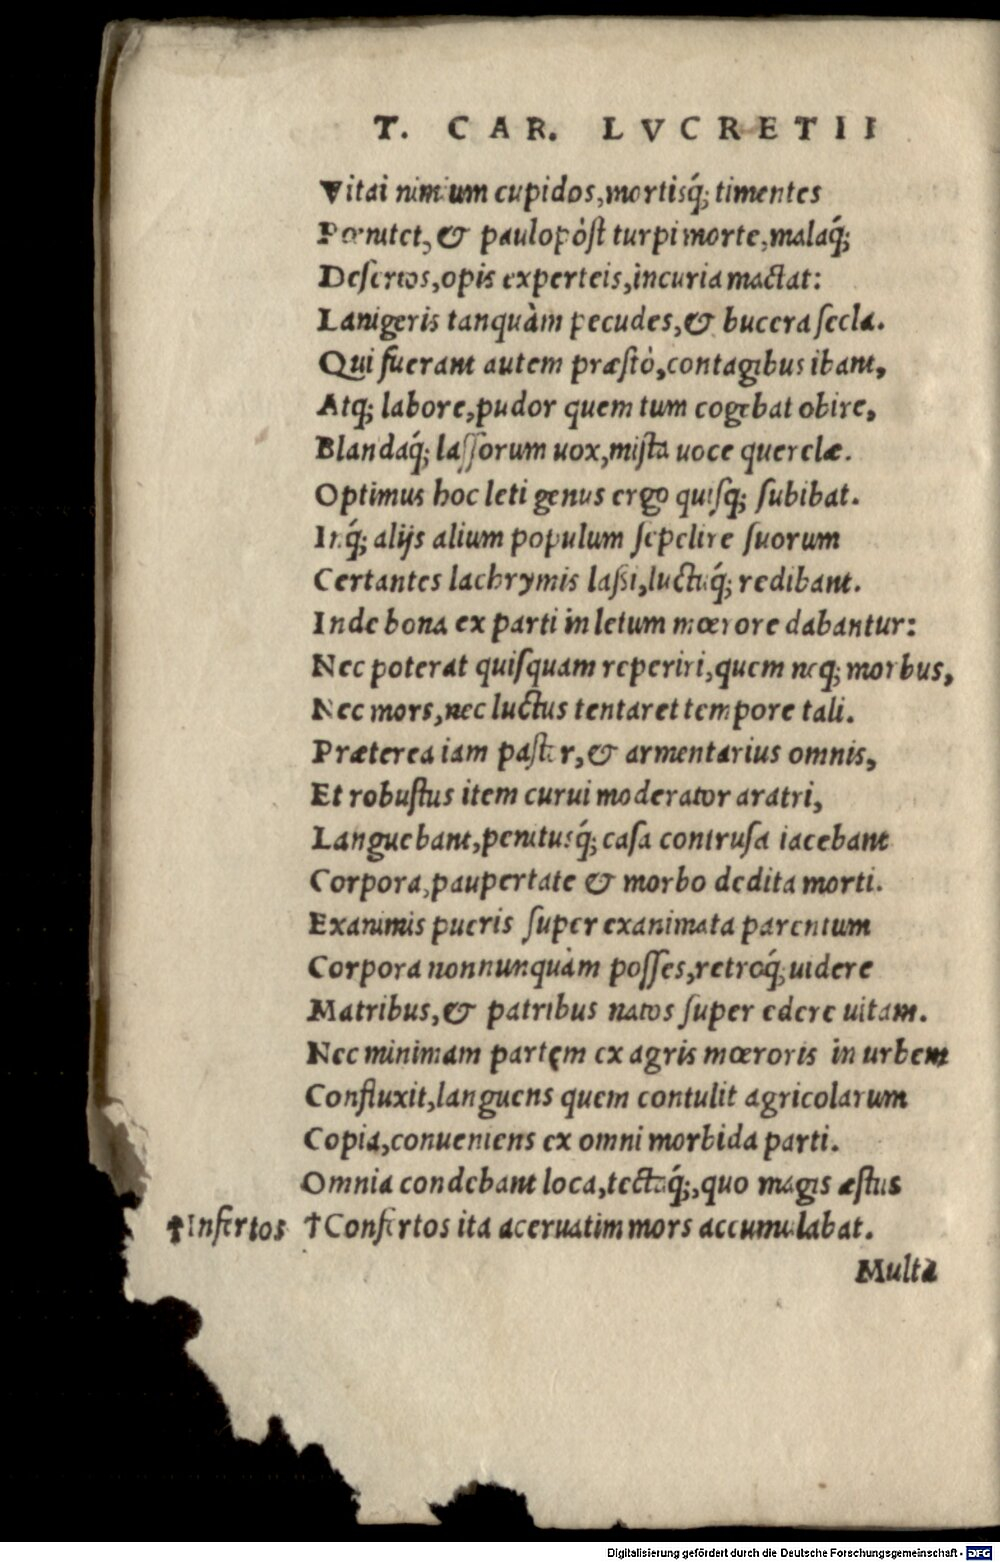 T. CAR. LVCRETII
Vitai nimium cupidos, mortisq́; timentes
Pœnitet, & paulopòſt turpi morte, malaq́;
Deſertos, opis experteis, incuria mactat:
Lanigeris tanquàm pecudes, & bucera ſecla.
Qui fuerant autem præſtò, contagibus ibant,
Atq; labore, pudor quem tum cogebat obire,
Blandaq́; laſſorum uox, miſta uoce querelæ.
Optimus hoc leti genus ergo quiſq; ſubibat.
Inq́; alijs alium populum ſepelire ſuorum
Certantes lachrymis laßi, luctuq́; redibant.
Inde bona ex parti in letum mœrore dabantur:
Nec poterat quiſquam reperiri, quem neq; morbus,
Nec mors, nec luctus tentaret tempore tali.
Præterea iam paſtor, & armentarius omnis,
Et robuſtus item curui moderator aratri,
Languebant, penitusq́; caſa contruſa iacebant
Corpora, paupertate & morbo dedita morti.
Exanimis pueris ſuper exanimata parentum
Corpora nonnunquàm poſſes, retroq́; uidere
Matribus, & patribus natos ſuper edere uitam.
Nec minimam partęm ex agris mœroris in urbem
Confluxit, languens quem contulit agricolarum
Copia, conueniens ex omni morbida parti.
Omnia condebant loca, tectaq́;, quo magis æſtus
†Inſertos †Confertos ita aceruatim mors accumulabat.
Multa
Digitalisierung gefördert durch die Deutsche Forschungsgemeinschaft - DFG